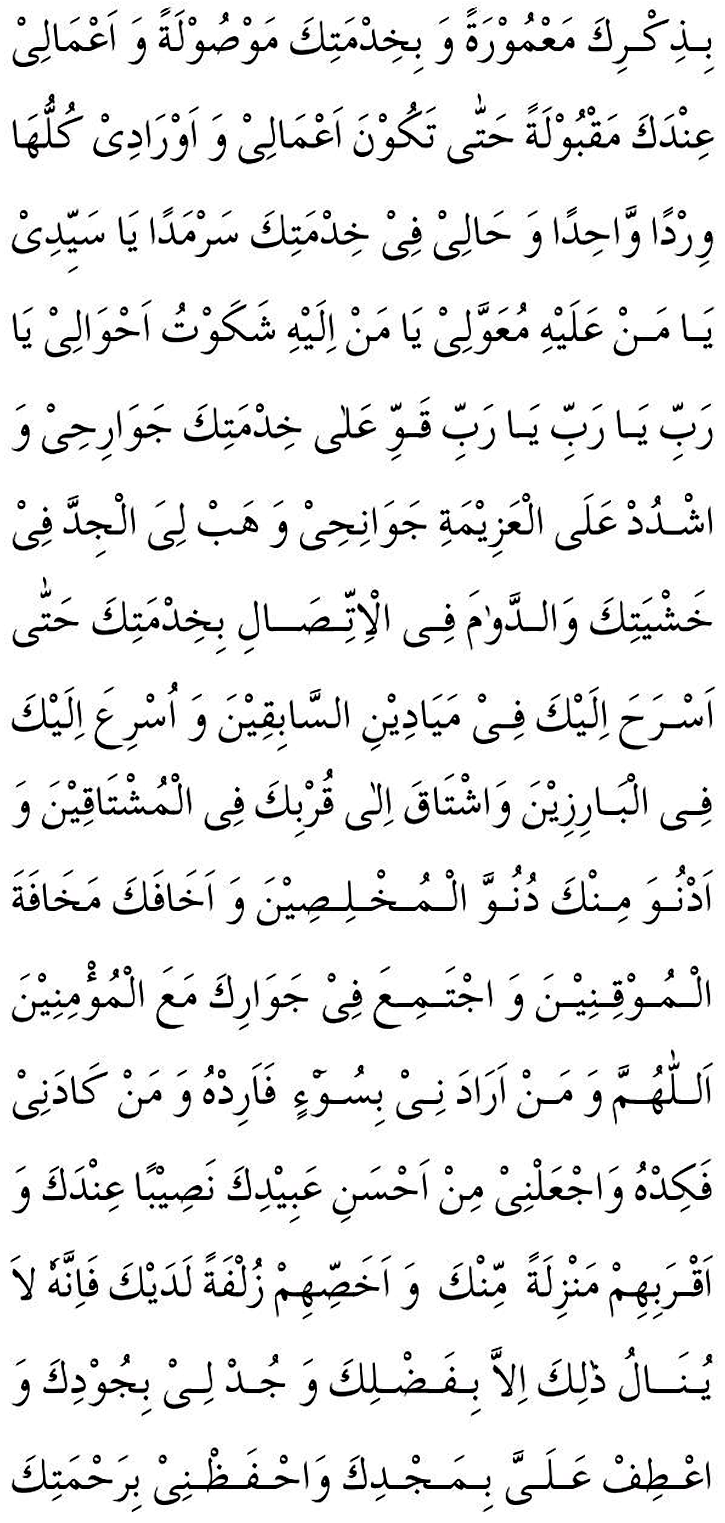 بِذِكْرِكَ مَعْمُوْرَةً وَ بِخِدْمَتِكَ مَوْصُوْلَةً وَ اَعْمَالِيْ
عِنْدَكَ مَقْبُوْلَةً حَتّٰى تَكُوْنَ اَعْمَالِيْ وَ اَوْرَادِيْ كُلُّهَا
وِرْدًا وَّاحِدًا وَ حَالِيْ فِيْ خِدْمَتِكَ سَرْمَدًا يَا سَيِّدِيْ
يَا مَنْ عَلَيْهِ مُعَوَّلِيْ يَا مَنْ اِلَيْهِ شَكَوْتُ اَحْوَالِيْ يَا
رَبِّ يَا رَبِّ يَا رَبِّ قَوِّ عَلٰى خِدْمَتِكَ جَوَارِحِيْ وَ
اشْدُدْ عَلَى الْعَزِيْمَةِ جَوَانِحِيْ وَ هَبْ لِيَ الْجِدَّ فِيْ
خَشْيَتِكَ وَالدَّوٰمَ فِى الْاِتِّصَالِ بِخِدْمَتِكَ حَتّٰى
اَسْرَحَ اِلَيْكَ فِيْ مَيَادِيْنِ السَّابِقِيْنَ وَ اُسْرِعَ اِلَيْكَ
فِى الْبَارِزِيْنَ وَاشْتَاقَ اِلٰى قُرْبِكَ فِى الْمُشْتَاقِيْنَ وَ
اَدْنُوَ مِنْكَ دُنُوَّ الْمُخْلِصِيْنَ وَ اَخَافَكَ مَخَافَةَ
الْمُوْقِنِيْنَ وَ اجْتَمِعَ فِيْ جَوَارِكَ مَعَ الْمُؤْمِنِيْنَ
اَللّٰهُمَّ وَ مَنْ اَرَادَ نِيْ بِسُوْٓءٍ فَاَرِدْهُ وَ مَنْ كَادَنِيْ
فَكِدْهُ وَاجْعَلْنِيْ مِنْ اَحْسَنِ عَبِيْدِكَ نَصِيْبًا عِنْدَكَ وَ
اَقْرَبِهِمْ مَنْزِلَةً مِّنْكَ وَ اَخَصِّهِمْ زُلْفَةً لَدَيْكَ فَاِنَّهٗ لاَ
يُنَالُ ذٰلِكَ اِلاَّ بِفَضْلِكَ وَ جُدْ لِيْ بِجُوْدِكَ وَ
اعْطِفْ عَلَىَّ بِمَجْدِكَ وَاحْفَظْنِيْ بِرَحْمَتِكَ